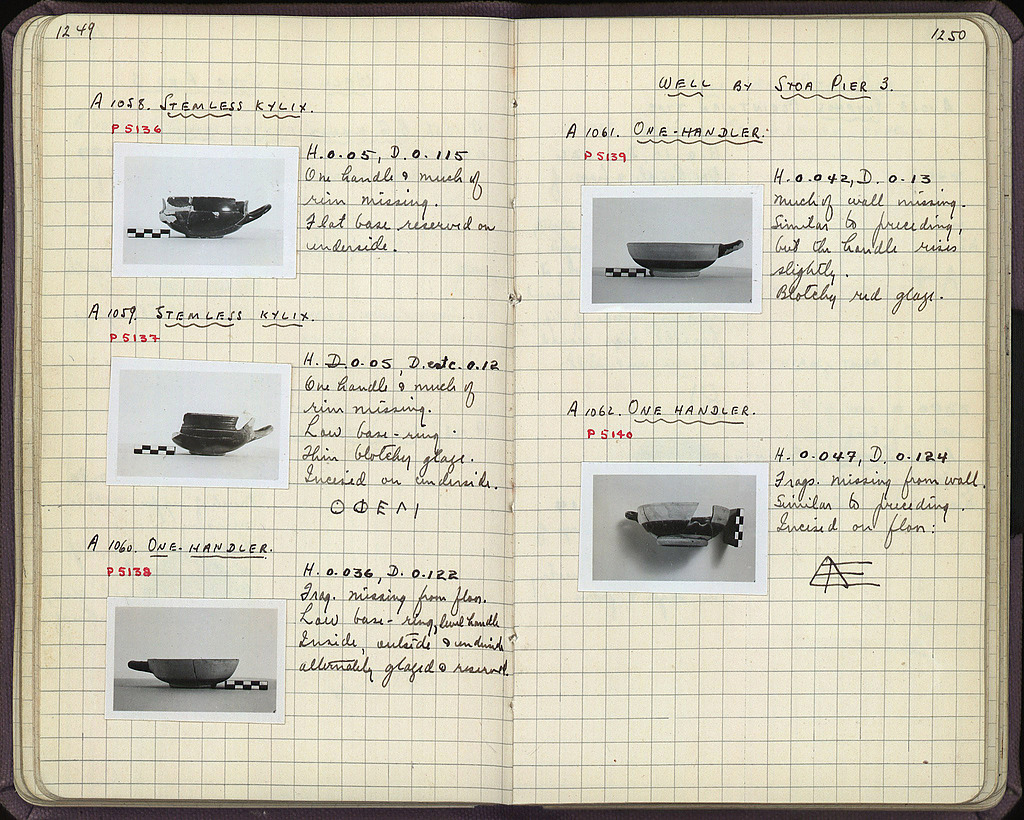 1249
A 1058. STEMLESS KYLIX.
P 5136
H. 0.05, D. 0.115
One handle & much of
rim missing.
Flat base reserved on
underside.
A 1059. STEMLESS KYLIX.
P 5137
H. D. 0.05, D. estc. 0.12
One handle & much of
rim missing.
Low base-ring.
Thin blotchy glaze.
Incised on underside.
A 1060. ONE-HANDLER.
P 5138
H. 0.036, D. 0.122
Frag. missing from floor.
Low base-ring, level handle
Inside, outside & underside
alternately glazed & reserved.
1250
WELL BY STOA PIER 3.
A 1061. ONE-HANDLER.
P 5139
H. 0.042, D. 0.13
Much of wall missing.
Similar to preceding,
but the handle rises
slightly.
Blotchy red glaze.
A 1062. ONE HANDLER.
P 5140
H. 0.047, D. 0.124
Frags. missing from wall.
Similar to preceding.
Incised on floor: